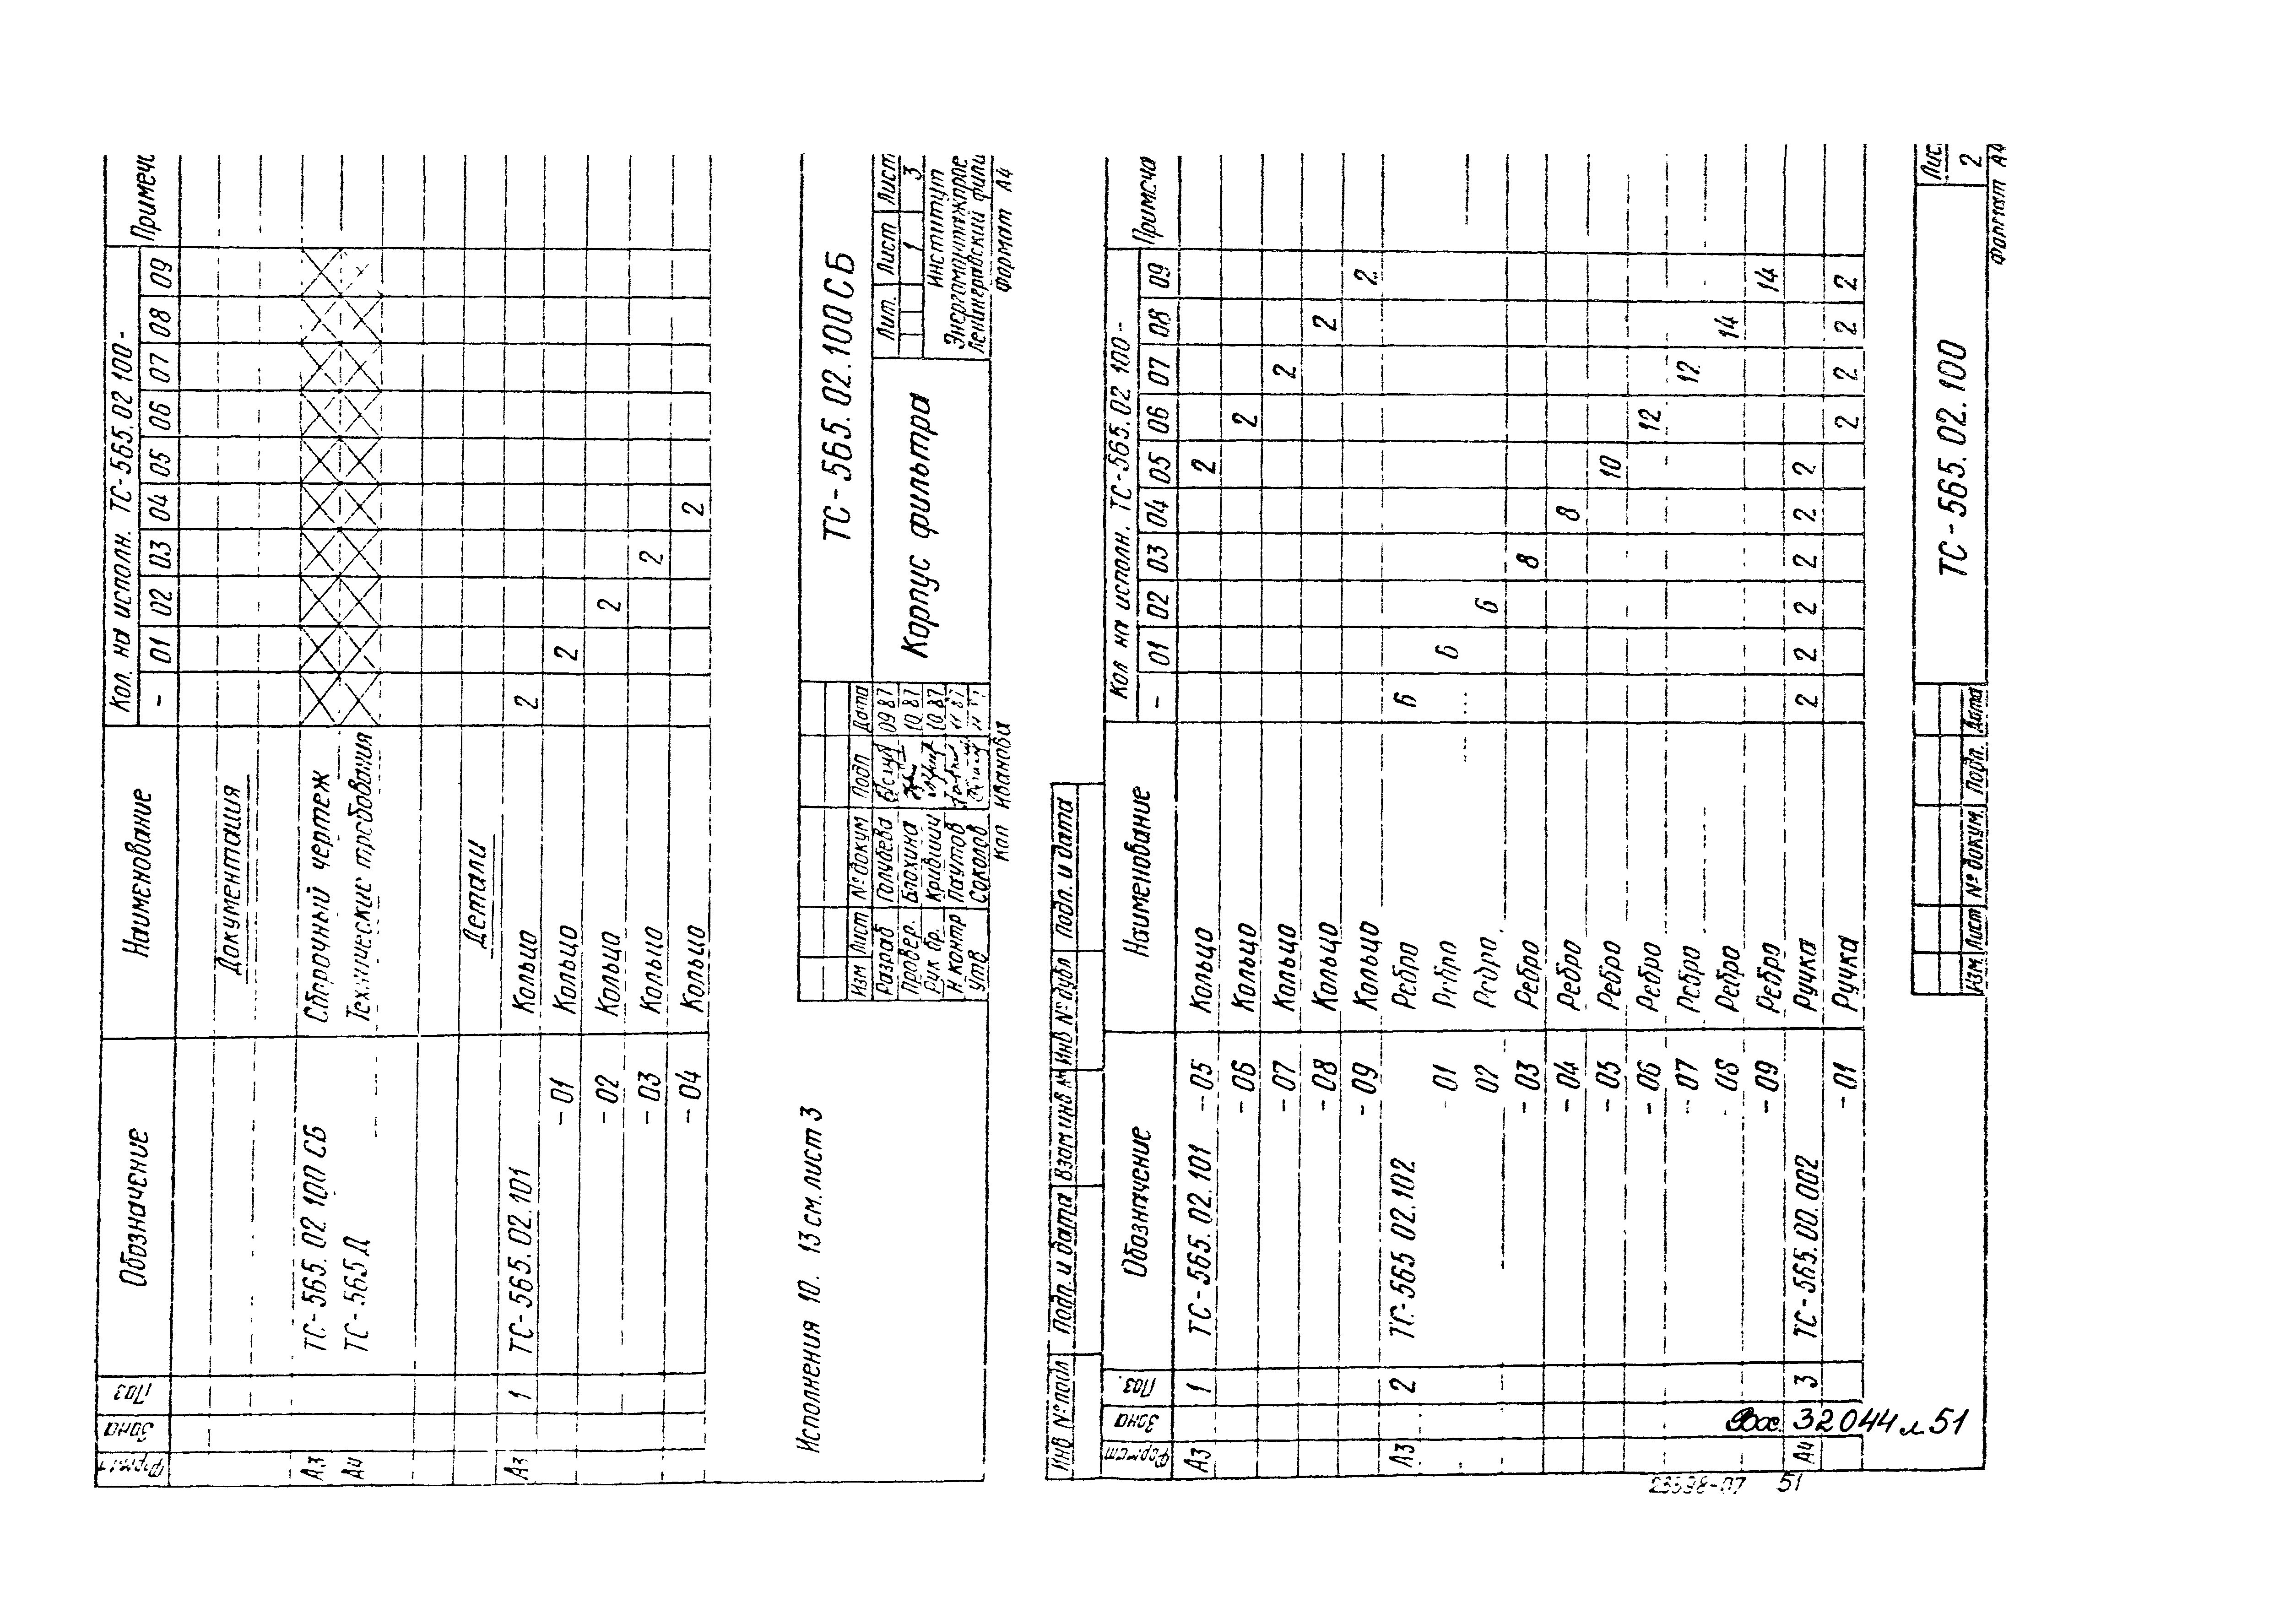 Кол. на исполн. ТС-565.02 100-
Обозначение Наименование - 01 02 03 04 05 06 07 08 09 Примеч
Зона Поз
Документация
А3 ТС-565.02 100 СБ Сборочный чертеж
А4 ТС-565Д Технические требования
Детали
А3 1 ТС-565.02.101 Кольцо 2
-01 Кольцо 2
-02 Кольцо 2
-03 Кольцо 2
-04 Кольцо 2
Исполнения 10. 13 см. лист 3
ТС-565.02.100СБ
Изм Лист № докум Подп Дата
Разраб Голубева 09 87
Провер. Блохина 10 87
Рук бр. Крившич 10 87
Н контр Паутов 11 87
Утв Соколов
Корпус фильтра
Лит. Лист Лист
1 3
Институт
Энергомонтажпрое
Ленинградский фили
Кол Иванова Формат А4
Инв № подл Подп. и дата Взам инв № Инв № дубл Подп. и дата
Кол на исполн. ТС-565.02 100-
Формат Зона Поз. Обозначение Наименование - 01 02 03 04 05 06 07 08 09 Примеча
А3 1 ТС-565.02.101 -05 Кольцо 2
-06 Кольцо 2
-07 Кольцо 2
-08 Кольцо 2
-09 Кольцо 2
А3 2 ТС-565 02.102 Ребро 6
-01 Ребро 6
02 Ребро 6
-03 Ребро 8
-04 Ребро 8
-05 Ребро 10
-06 Ребро 12
-07 Ребро 12
-08 Ребро 14
-09 Ребро 14
А4 3 ТС-565.00.002 Ручка 2 2 2 2 2 2
-01 Ручка 2 2 2 2
Изм Лист № докум Подп. Дата
ТС-565.02.100
Лис.
2
Формат А4
Вх. 32044 л.51
23598-07 51